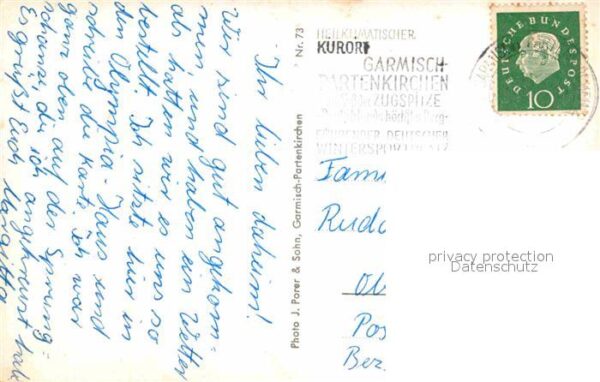 Ihr lieben daheim!
Wir sind gut angekom-
men und haben ein Wetter
als hätten wir es uns so
bestellt. Ich sitze hier in
dem Olympia-Haus und
schreibe die Karte. Ich war
ganz oben auf der Sprung=
schanze, die ich angehmust hab
Es grüßt Euch Margitta
Photo J. Porer & Sohn, Garmisch-Partenkirchen
Nr. 73
HEILKLIMATISCHER
KURORT
GARMISCH-
PARTENKIRCHEN
ZUGSPITZE
FÜHRENDER DEUTSCHER
WINTERSPORTPLATZ
DEUTSCHE BUNDESPOST
10
Fami
Rudo
Ob
Pos
Bez.
privacy protection
Datenschutz